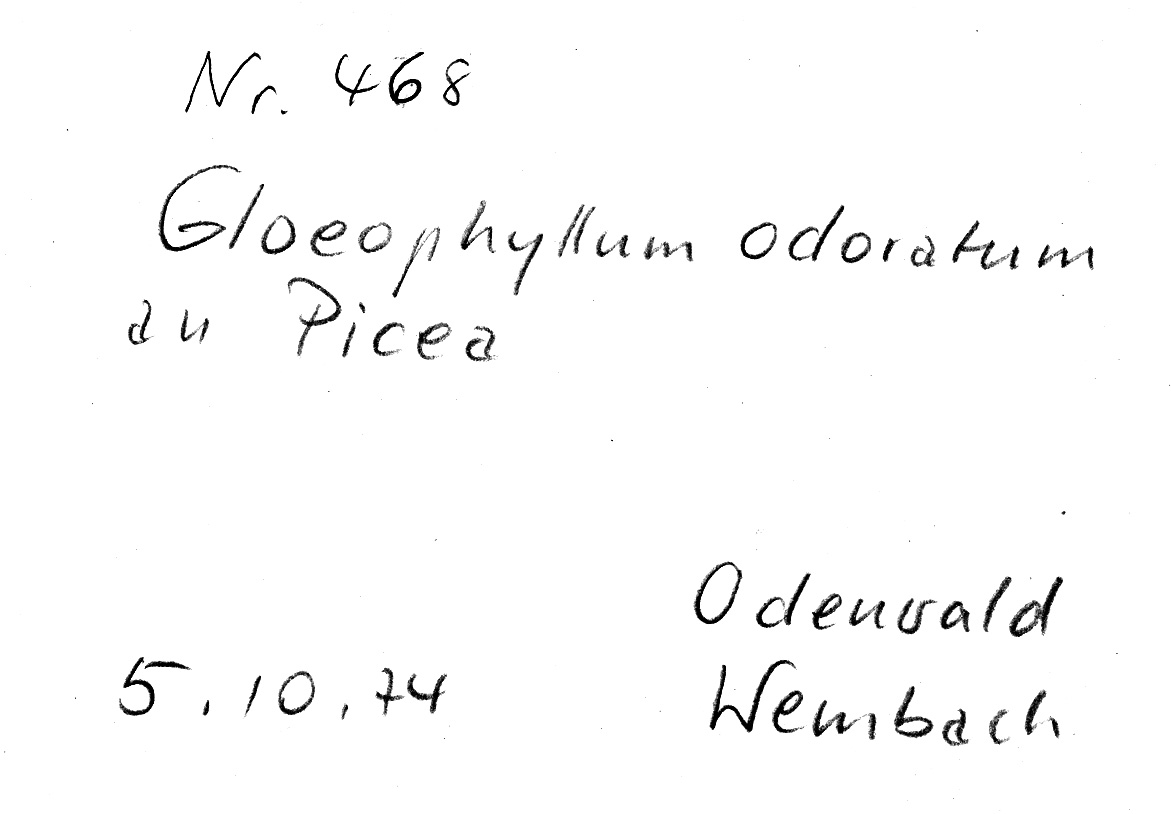 Nr. 468
Gloeophyllum odoratum
an Picea
Odenwald
5.10.74 Wembach